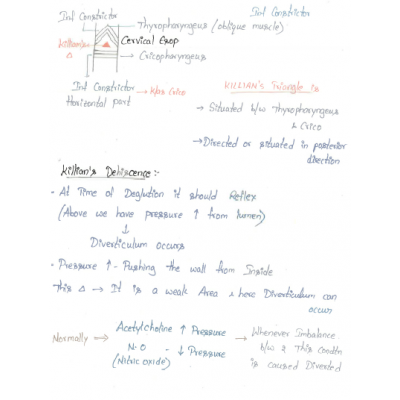 Inf Constrictor
Inf Constrictor
Thyropharyngeus (oblique muscle)
Killian's
Δ
Cervical Esop
Cricopharyngeus
Inf Constrictor → k/as Crico
Horizontal part
KILLIAN's Triangle is
→ Situated b/w Thyropharyngeus
& Crico
→ Directed or situated in posterior
direction
Killian's Dehiscence :-
• At Time of Deglution it should Reflex
(Above we have pressure ↑ from lumen)
↓
Diverticulum occurs
• Pressure ↑ - Pushing the wall from Inside
This Δ → It is a weak Area & here Diverticulum can
occur
Normally ⇔ Acetylcholine ↑ Pressure → Whenever Imbalance
N.O - ↓ Pressure b/w & This Condtn
(Nitric oxide) is caused Diverted